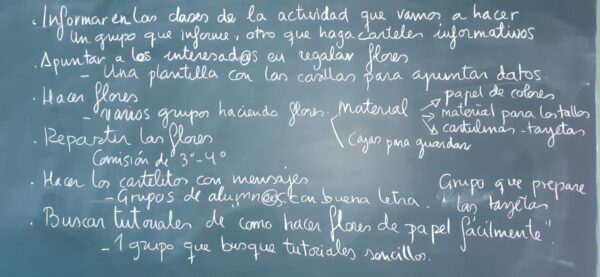 · Informar en las clases de la actividad que vamos a hacer
Un grupo que informe, otro que haga carteles informativos
· Apuntar a los interesad@s en regalar flores
- Una plantilla con las casillas para apuntar datos.
· Hacer flores
- Varios grupos haciendo flores. Material
papel de colores
material para los tallos
cartulinas - tarjetas
Cajas para guardar
· Repartir las flores
Comisión de 3º-4º
· Hacer los cartelitos con mensajes
- Grupos de alumn@s con buena letra.
Grupo que prepare
las tarjetas
· Buscar tutoriales de como hacer flores de papel "fácilmente".
- 1 grupo que busque tutoriales sencillos.